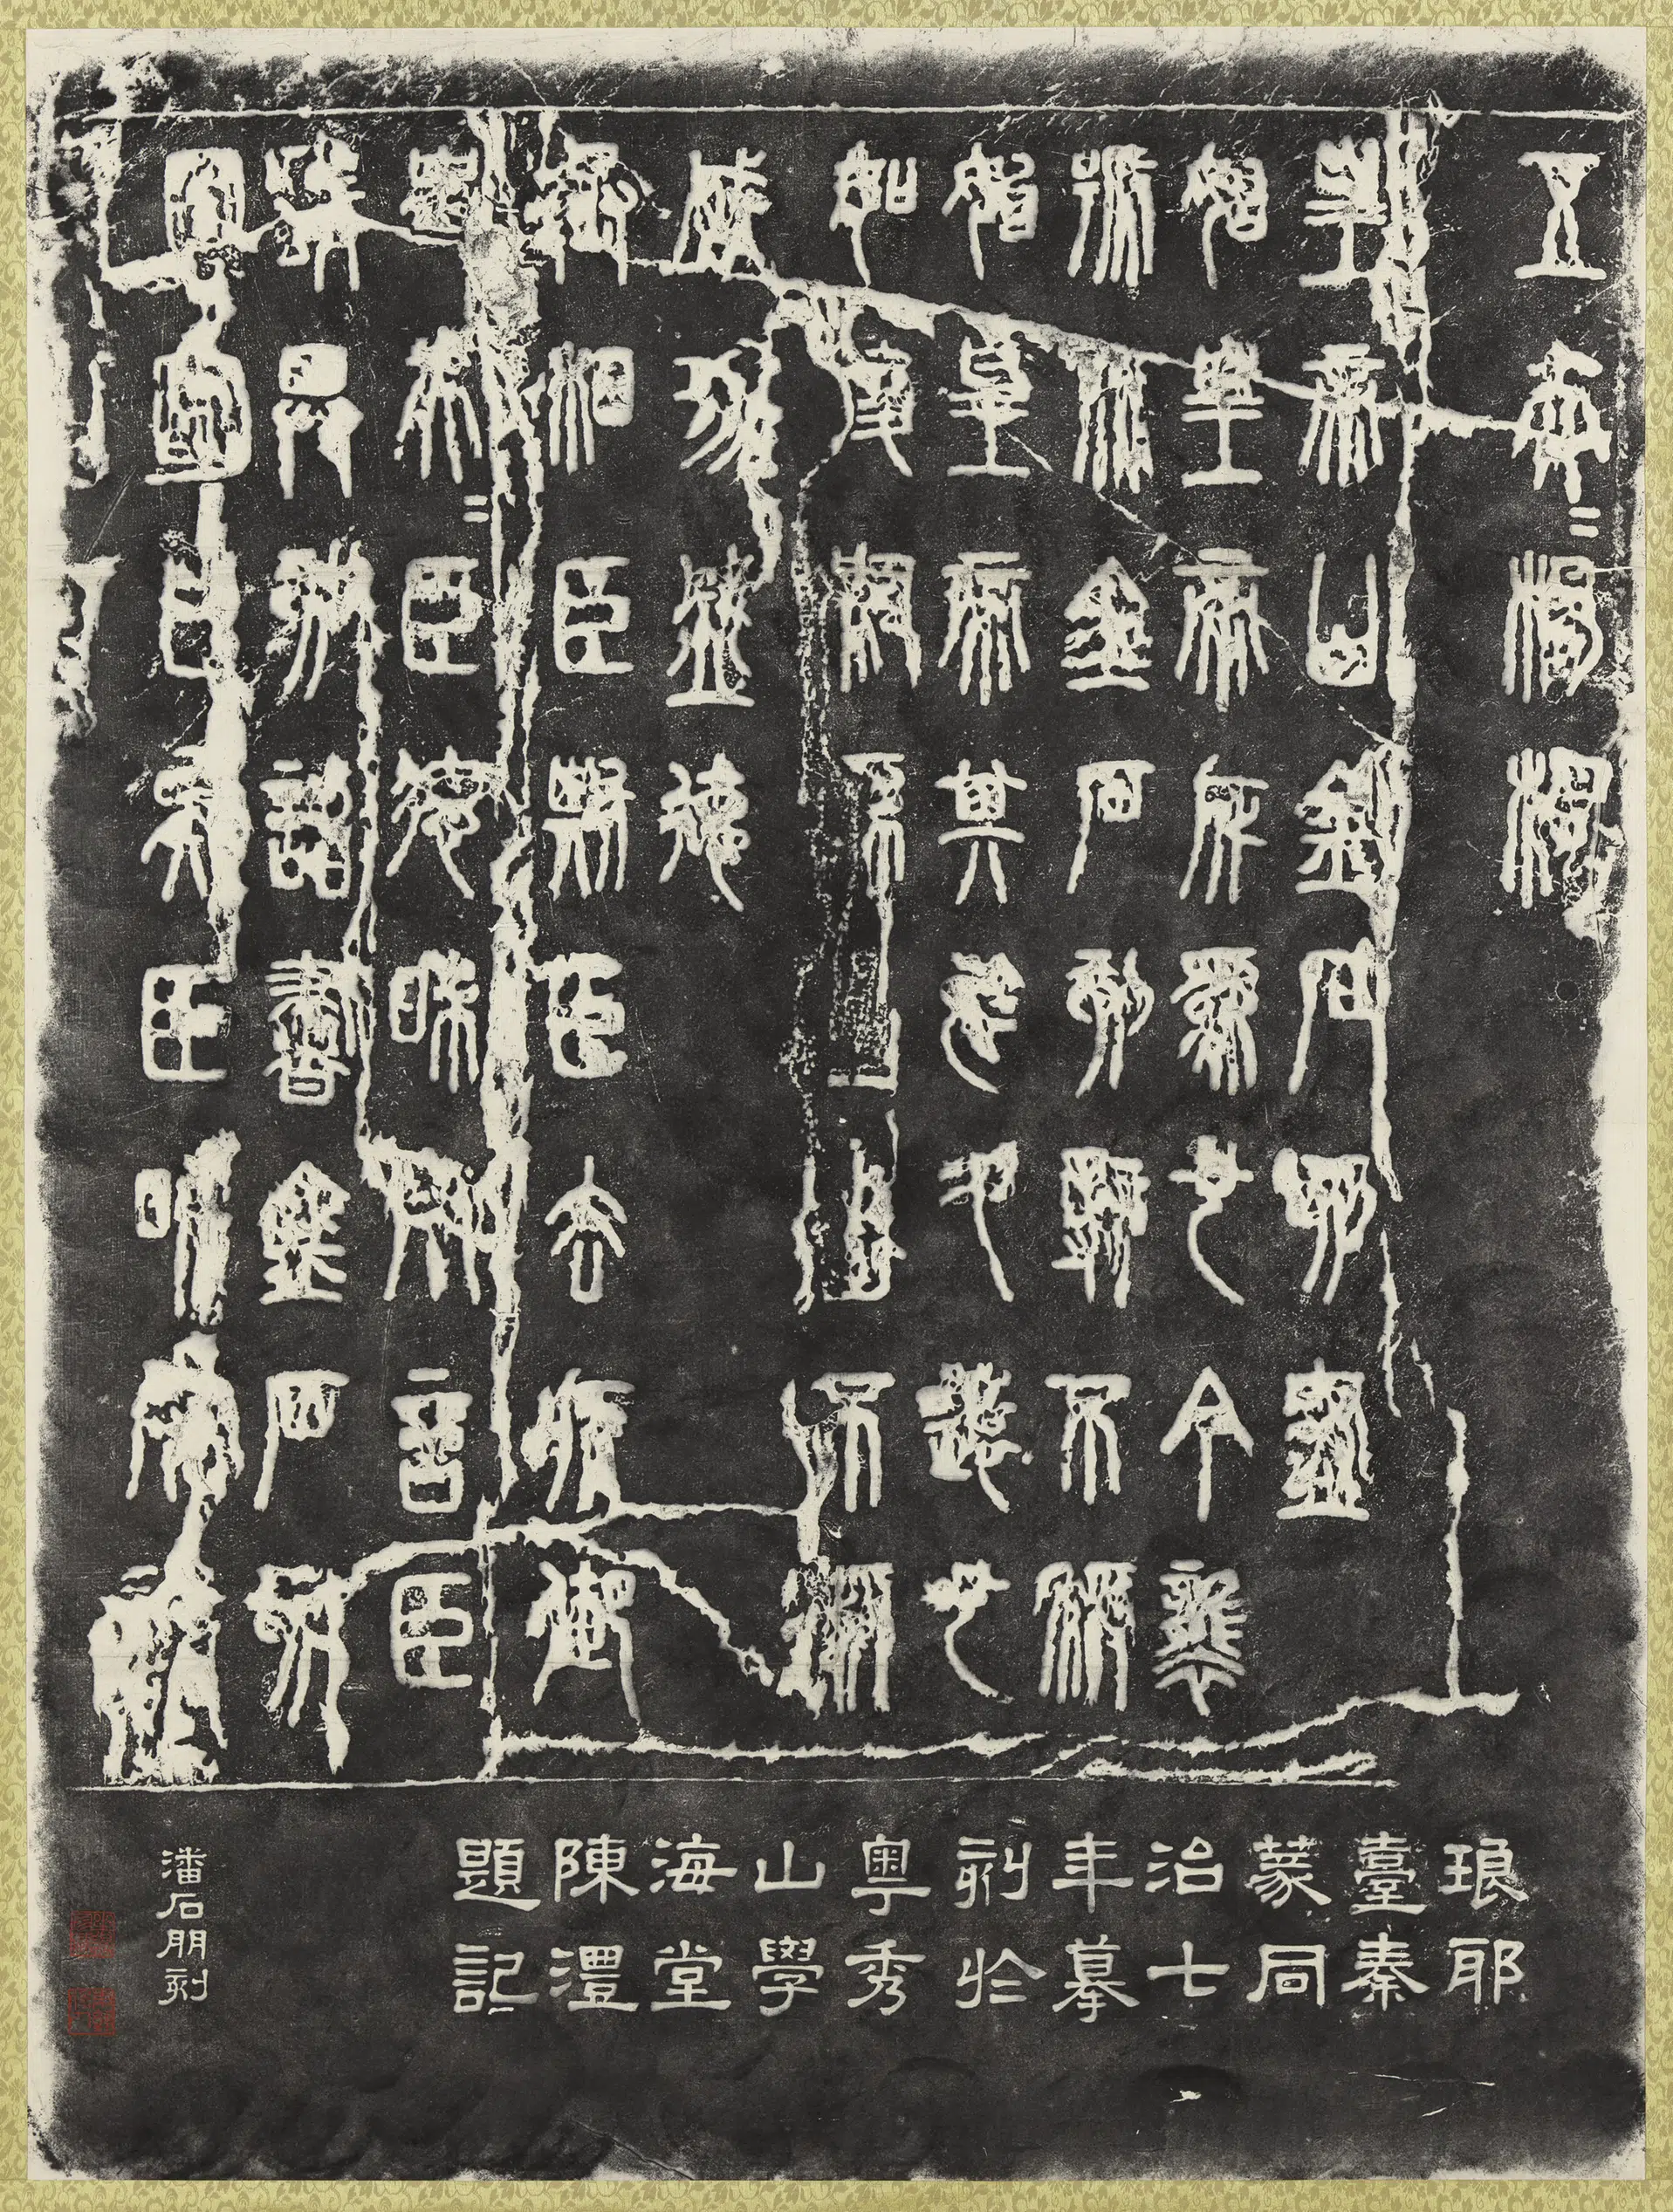 五夫=楊樛
皇帝曰金石刻盡
始皇帝所為也今襲
號而金石刻辭不稱
始皇帝其於久遠也
如後嗣為之者不稱
成功盛德
丞相臣斯臣去疾御
史夫=臣德昧死言臣
請具刻詔書金石刻
因明白矣臣昧死請
琅耶
臺秦
篆同
治七
年摹
刻於
粵秀
山學
海堂
陳澧
題記
潘石朋刻